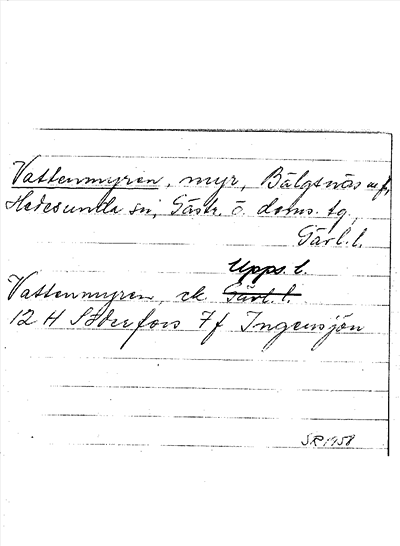 Vattenmyren, myr, Bälgsnäs m.fl.,
Hedesunda sn, Gästr. ö. doms. tg,
Gävl. l.
Upps. l.
Vattenmyren, ek. Gävl. l.
12 H Söderfors 7f Ingensjön
SR 1958